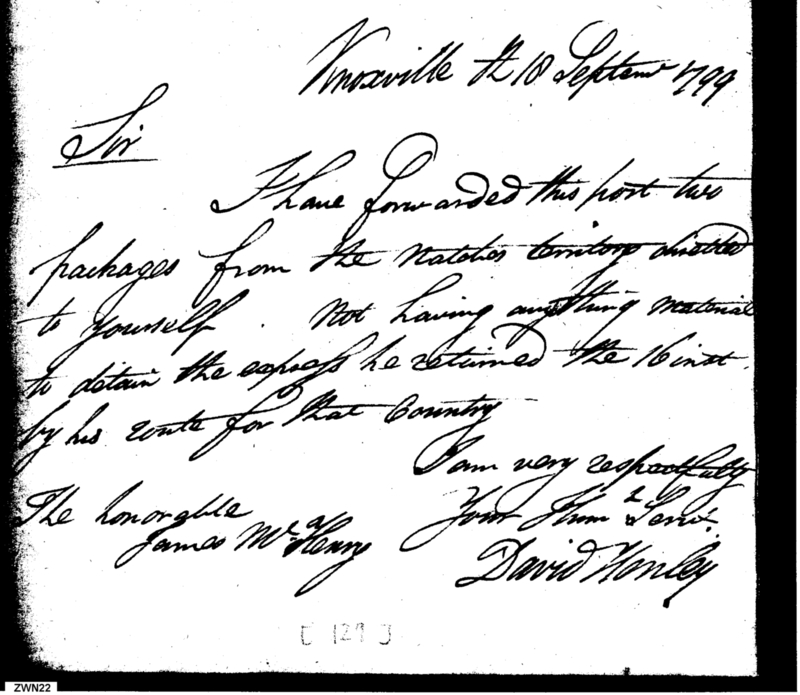 Knoxville th 18 Septemr 1799
Sir
I have forwarded this post two
packages from the Natches territory directed
to yourself. Not having anything material
to detain the express he returned the 16 inst.
by his route for that Country
I am very respectfully
Your Hum l Servt.
The honorable
James McHenry
David Henley
[ 129 ]
ZWN22